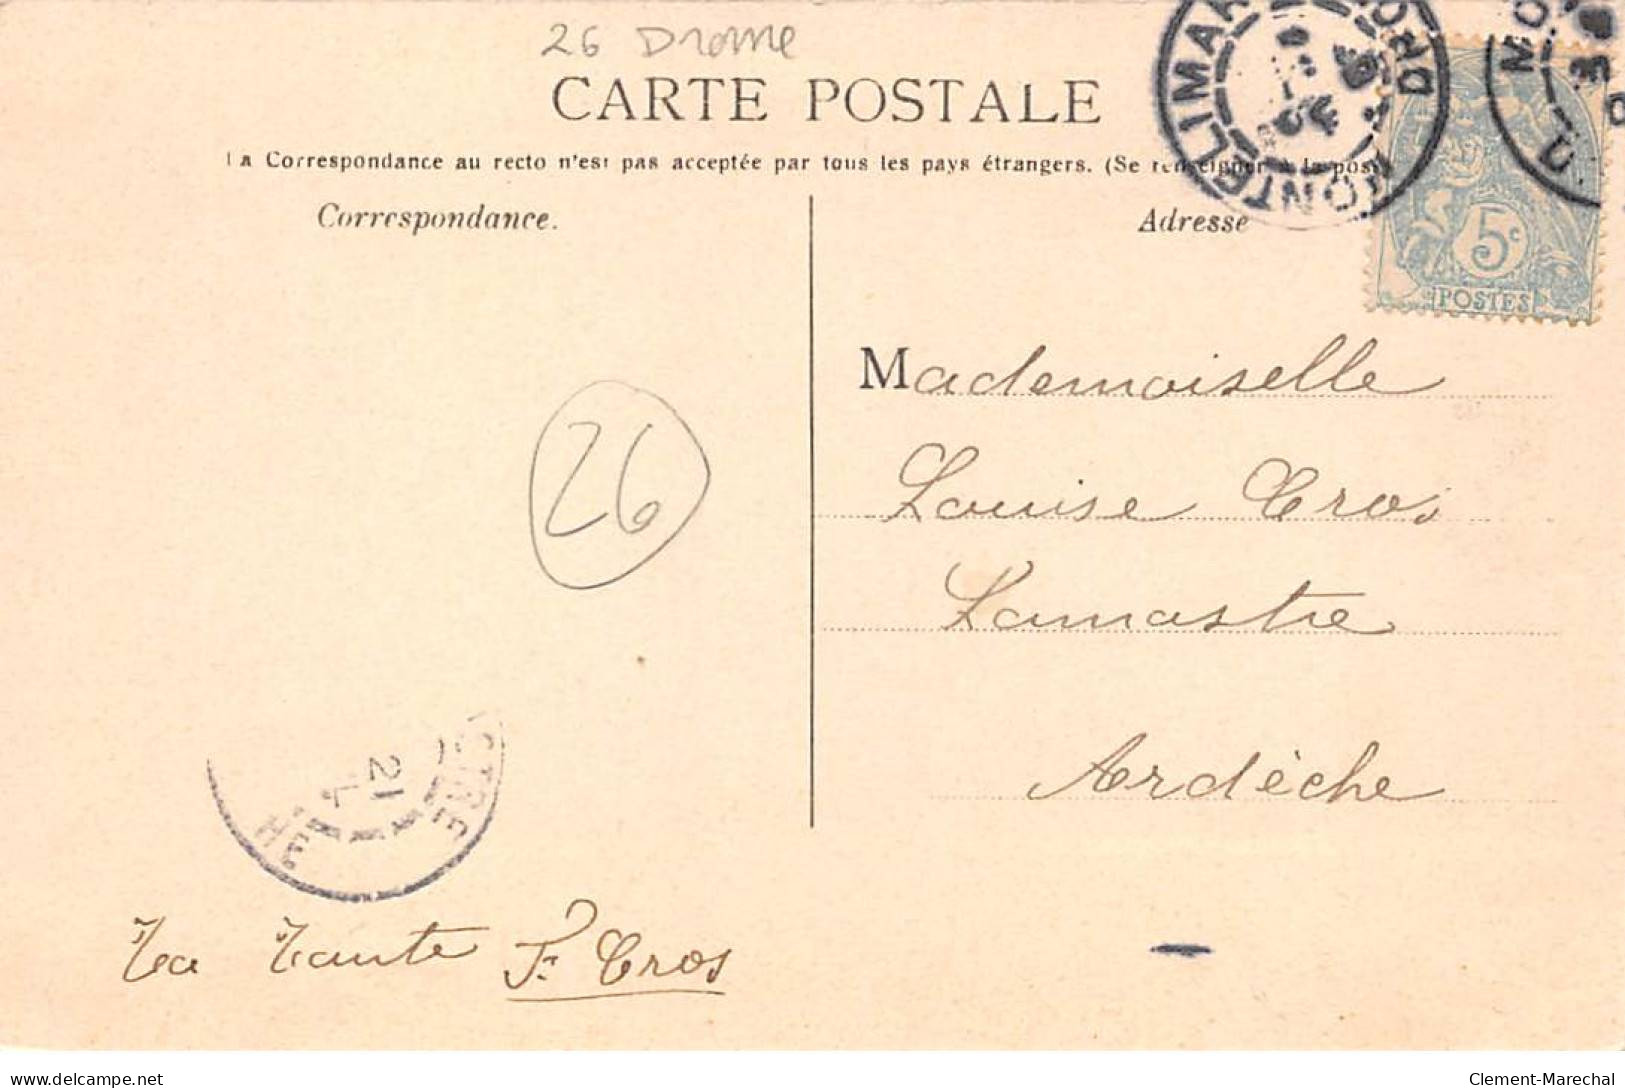 26 Drome
CARTE POSTALE
La Correspondance au recto n'est pas acceptée par tous les pays étrangers. (Se renseigner à la poste
Correspondance.
Adresse
5c
POSTES
Mademoiselle
Louise Cros
Lamastre
Ardèche
26
21
Ta Tante
Cros
delcampe.net
Clement-Marechal